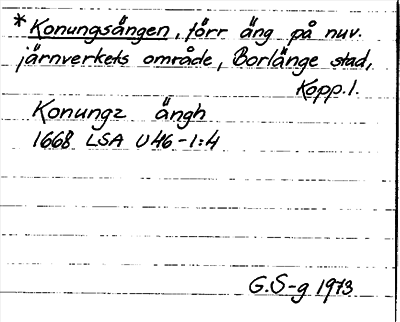 * Konungsängen, förr äng på nuv.
järnverkets område, Borlänge stad,
Kopp.l.
Konungz ängh
1668 LSA U46-1:4
G.S-g 1973